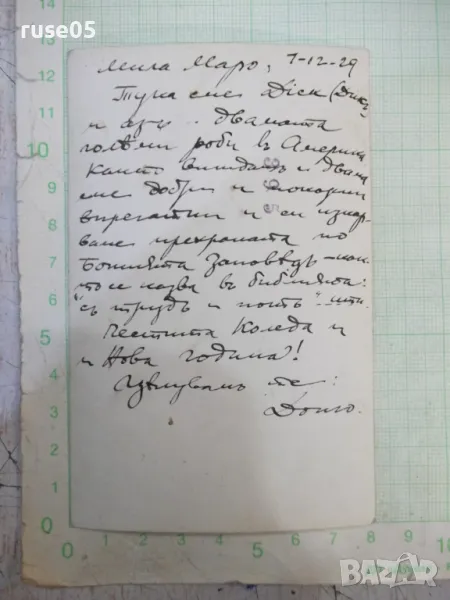 ruse05
Мила Маро, 7-12-29
Тука сме Дick (Дикъ
и азъ. двамата
голѣми роби въ Америка
както виждашъ и двама
сме добри и покорни
впрегатни и си изкар-
ваме прехраната по
Божията заповѣдь -
то се казва въ библията:
"съ трудъ и потъ"
Честита Коледа и
и Нова година!
Цѣлувамъ те:
Дочо.
12
11
10
9
8
7
6
5
4
3
2
1
0
0 1 2 3 4 5 6 7 8 9 10
BAZAR